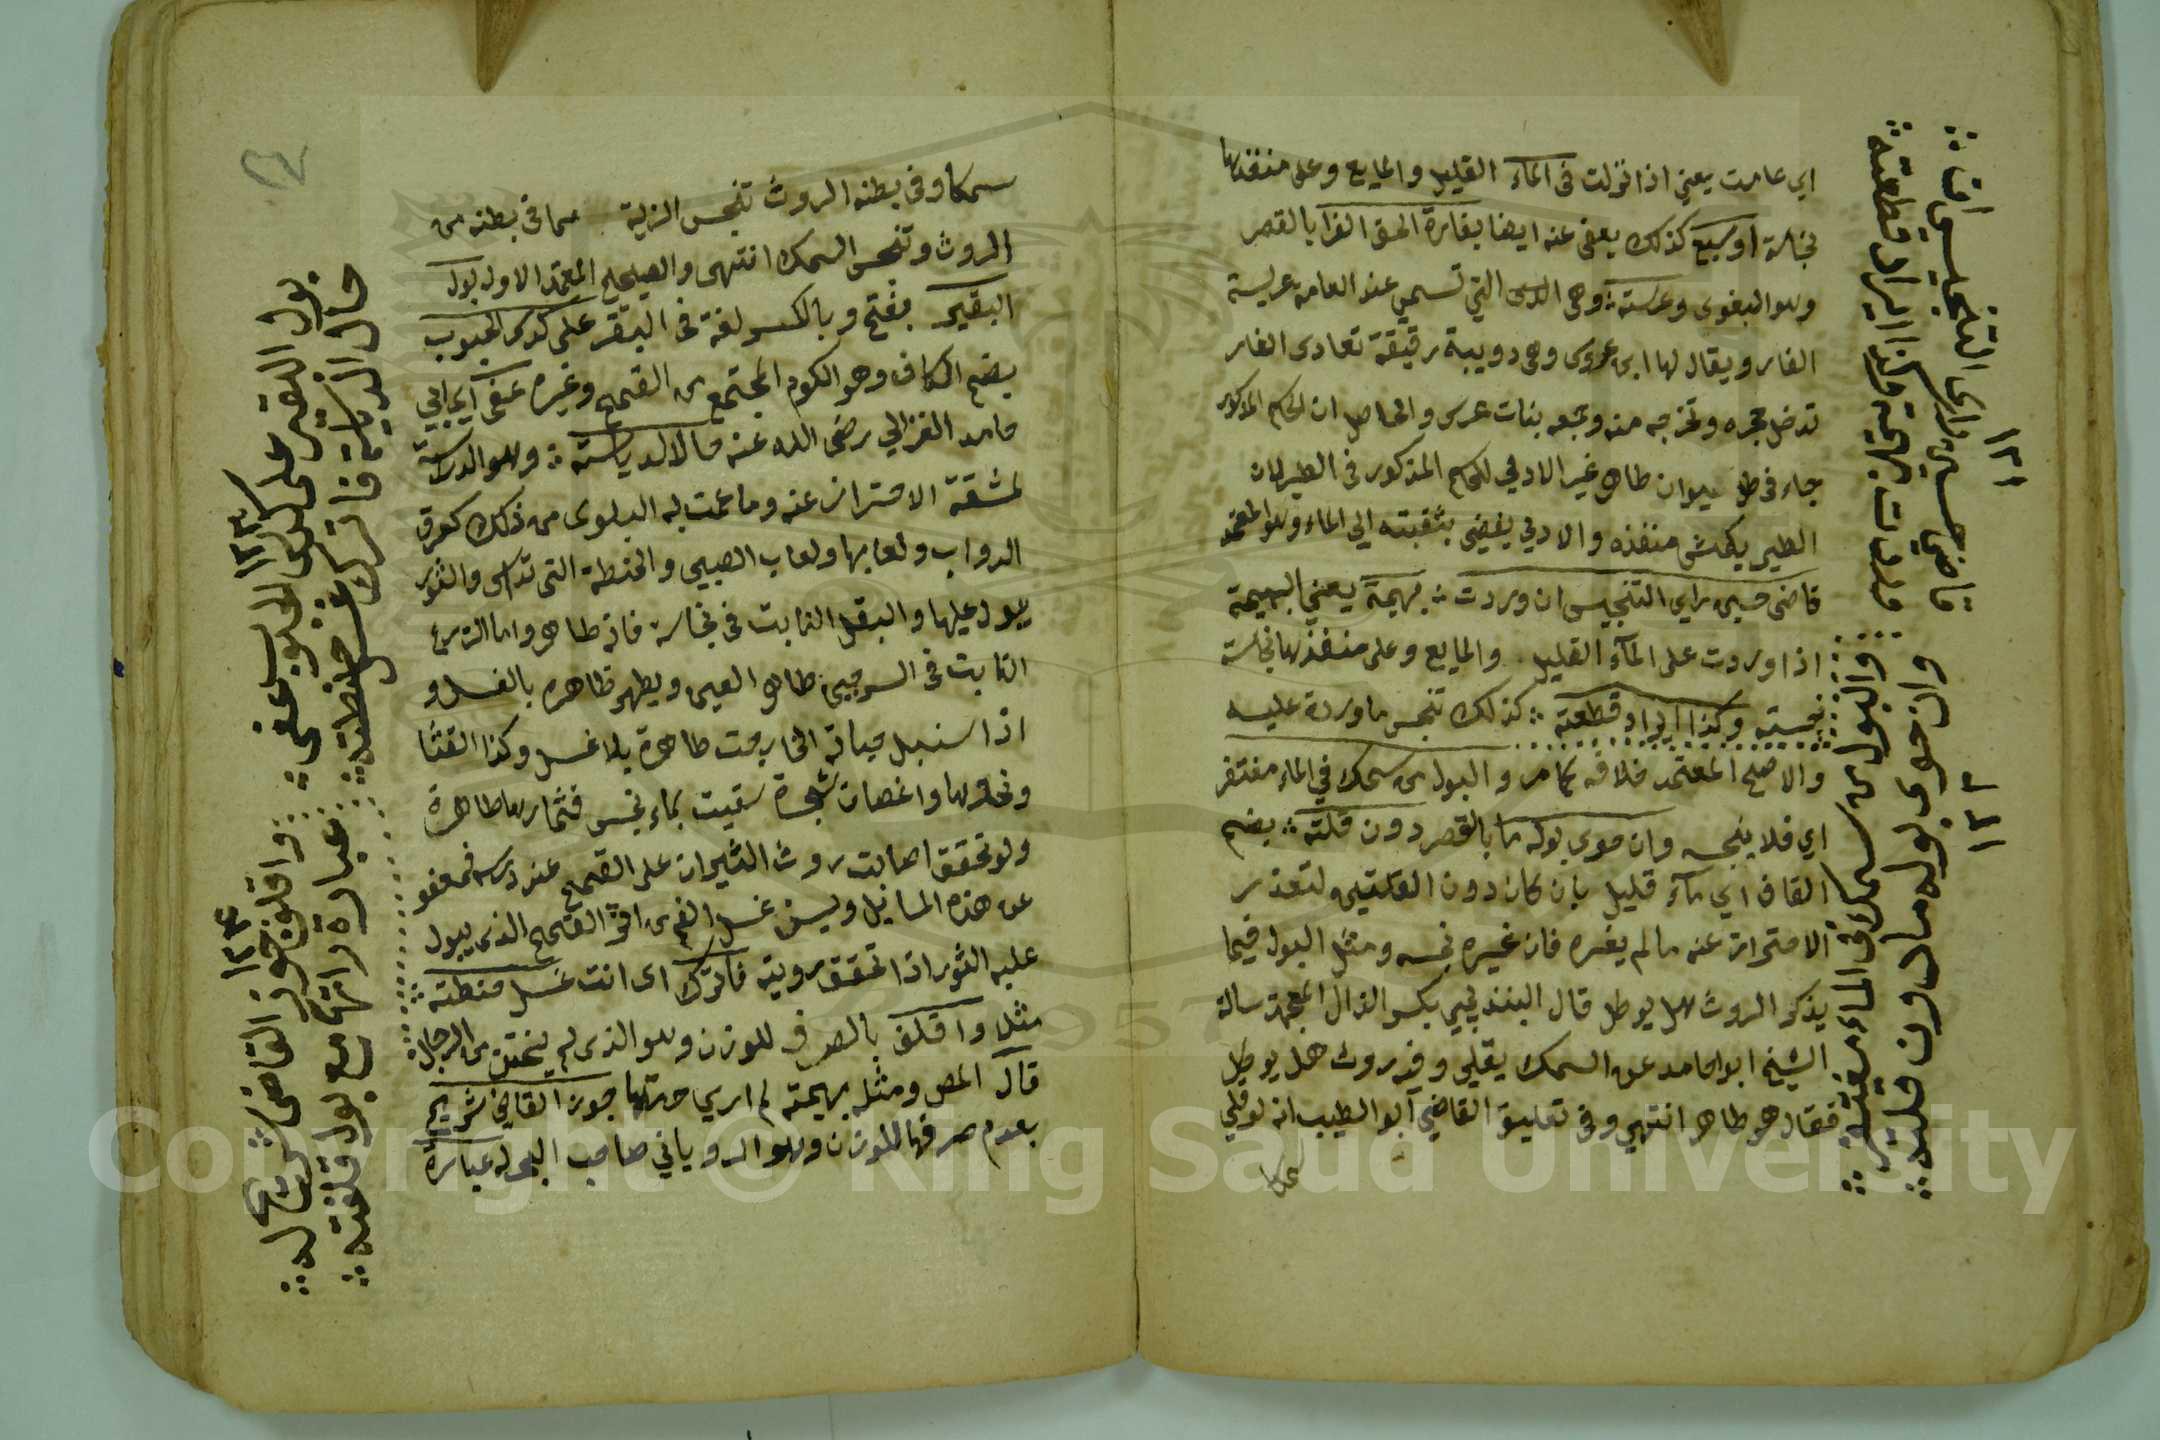 اي عامت يعني اذا نزلت في الماء القليل والمايع وعلى منفذها
نجاسة اوسبع كذلك يعفى عنه ايضا بفارة الحق الفرا بالقصر
وهو البغوى وعرسة وهي التي تسمى عند العامة عريسة
الفار ويقال لها ابن عروس وهي دويبة رقيقة تعادى الفار
تدخل جحره وتخرجه منه وجمعه بنات عرس والحاصل ان الحكم المذكور
جاء في كل حيوان طاهر غير الادمي للحكم المذكور في الطير لان
الطير يكمش منفذه والادمي يفضي بثقبته الي الماء وهو المعتمد
قاضى حسين راي التنجيس ان وردت بهيمة يعني البهيمة
اذا وردت على الماء القليل والمايع وعلى منفذها نجاسة
نجسته وكذا ايراد قطعته كذلك تنجس ما وردة عليه
والاصح المعتمد خلافه كما مر والبول من سمك في الماء مغتفر
اي فلا ينجسه وان حوى بوله ما بالقصر دون قلته بضم
القاف اي ماء قليل بان كان دون القلتين ولتعذر
الاحتراز عنه ما لم يغيره فان غيره نجسه ومثل البول فيما
يذكر الروث هل يوكل قال البندنيجي بكسر الذال المعجمة سالت
الشيخ ابو احامد عن السمك يقلي وفيه روث هل يوكل
فقال هو طاهر انتهي وفي تعليق القاضي ابو الطيب انه لو قلي
سمكا
١٣١
قاضي حسين راى التنجيس ان
وردت بهيمة وكذا ايراد قطعته
١٣٢
والبول من سمك في الماء مغتفر
وان حوى بوله ما دون قلته
٢٧
سمكا وفي بطنه الروث تنجس الزيت مما في بطنه من
الروث وتنجس السمك انتهى والصحيح المعتمد الاول بول
البقير بفتح وبالكسر لغة في البقر على كدس الحبوب
بضم الكاف وهو الكوم المجتمع من القمح وغيره عفى اي ابي
حامد الغزالي رضى الله عنه حال الدياسة وهو الدراسة
لمشقة الاحتراز عنه وما عمت به البلوى من ذلك كعرق
الدواب ولعابها ولعاب الصبي والحنطة التي تداس والثور
يبول عليها والبقل النابت في نجاسة فانه طاهر واما الزرع
النابت في السرجين طاهر العين ويطهر ظاهره بالغسل و
اذا سنبل حباته الخارجت طاهرة بلا غسل وكذا القثا
ونحوها واغصان شجرة سقيت بماء نجس فثمارها طاهرة
ولو تحقق اصابت روث الثيران على القمح عند درسه فمعفو
عن هذه المسايل ويسن غسل الفم من اثر القمح الذي يبول
عليه الثور اذا تحقق رويته فاترك اي انت غسل حنطته
مثل واقلف بالصرف للوزن وهو الذي لم يختتن من الرجال
قال المص ومثله بهيمته لم اري حرمتها جوز القاضي شريح
بعدم صرفها للوزن وهو الروياني صاحب البحر عبارة
١٣٣
بول البقير على كدس الحبوب عفي
حال الدياسة فاترك غسل حنطته
١٣٤
واقلف جوز القاضي شريح له
عبارة اتهم مع بول قلفته